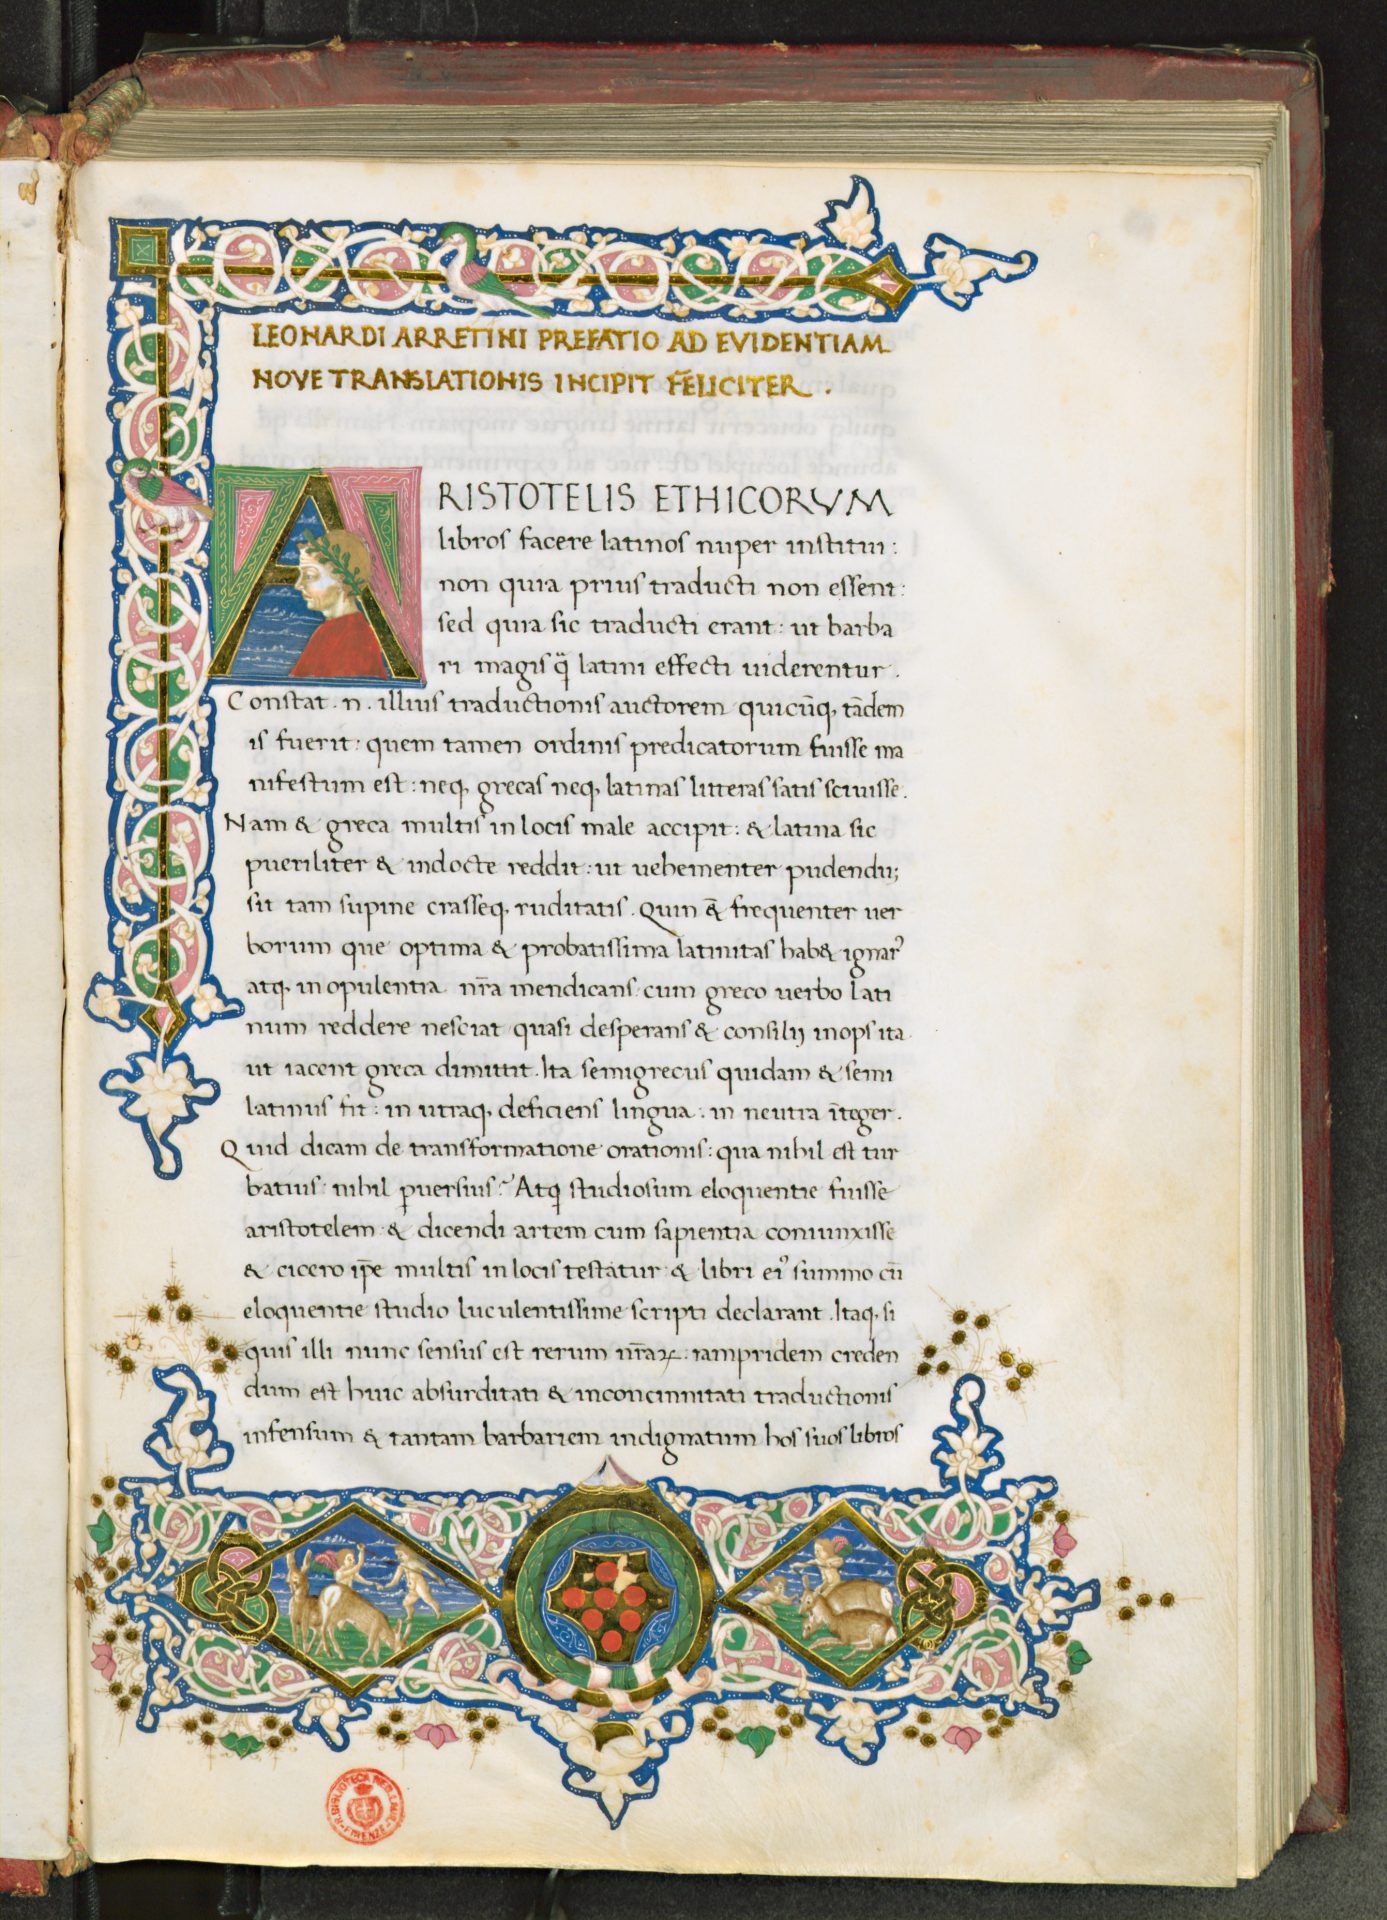 LEONARDI ARRETINI PREFATIO AD EVIDENTIAM
NOVE TRANSLATIONIS INCIPIT FELICITER .
ARISTOTELIS ETHICORVM
libros facere latinos nuper institui :
non quia prius traducti non essent :
sed quia sic traducti erant : ut barba
ri magis q̄ latini effecti uiderentur .
Constat . n . illius traductionis auctorem quicūq, tādem
is fuerit : quem tamen ordinis predicatorum fuisse ma
nifestum est : neq, grecas neq, latinas litteras satis sciuisse .
Nam & greca multis in locis male accipit : & latina sic
pueriliter & indocte reddit : ut uehementer pudendū
sit tam supine crasseq, ruditatis . Quin & frequenter uer
borum que optima & probatissima latinitas hab& ignarꝰ
atq, in opulentia nr̄a mendicans cum greco uerbo lati
num reddere nesciat quasi desperans & consilij inops ita
ut iacent greca dimittit . Ita semigrecus quidam & semi
latinus fit : in utraq, deficiens lingua . in neutra īteger .
Quid dicam de transformatione orationis : qua nihil est tur
batius : nihil ꝑuersius ? Atq studiosum eloquentie fuisse
aristotelem & dicendi artem cum sapientia coniunxisse
& cicero ip̄e multis in locis testatur & libri eiꝰ summo cū
eloquentie studio luculentissime scripti declarant . Itaq, si
quis illi nunc sensus est rerum nr̄aꝝ : iampridem creden
dum est huic absurditati & inconcinnitati traductionis
infensum & tantam barbariem indignatum hos suos libros